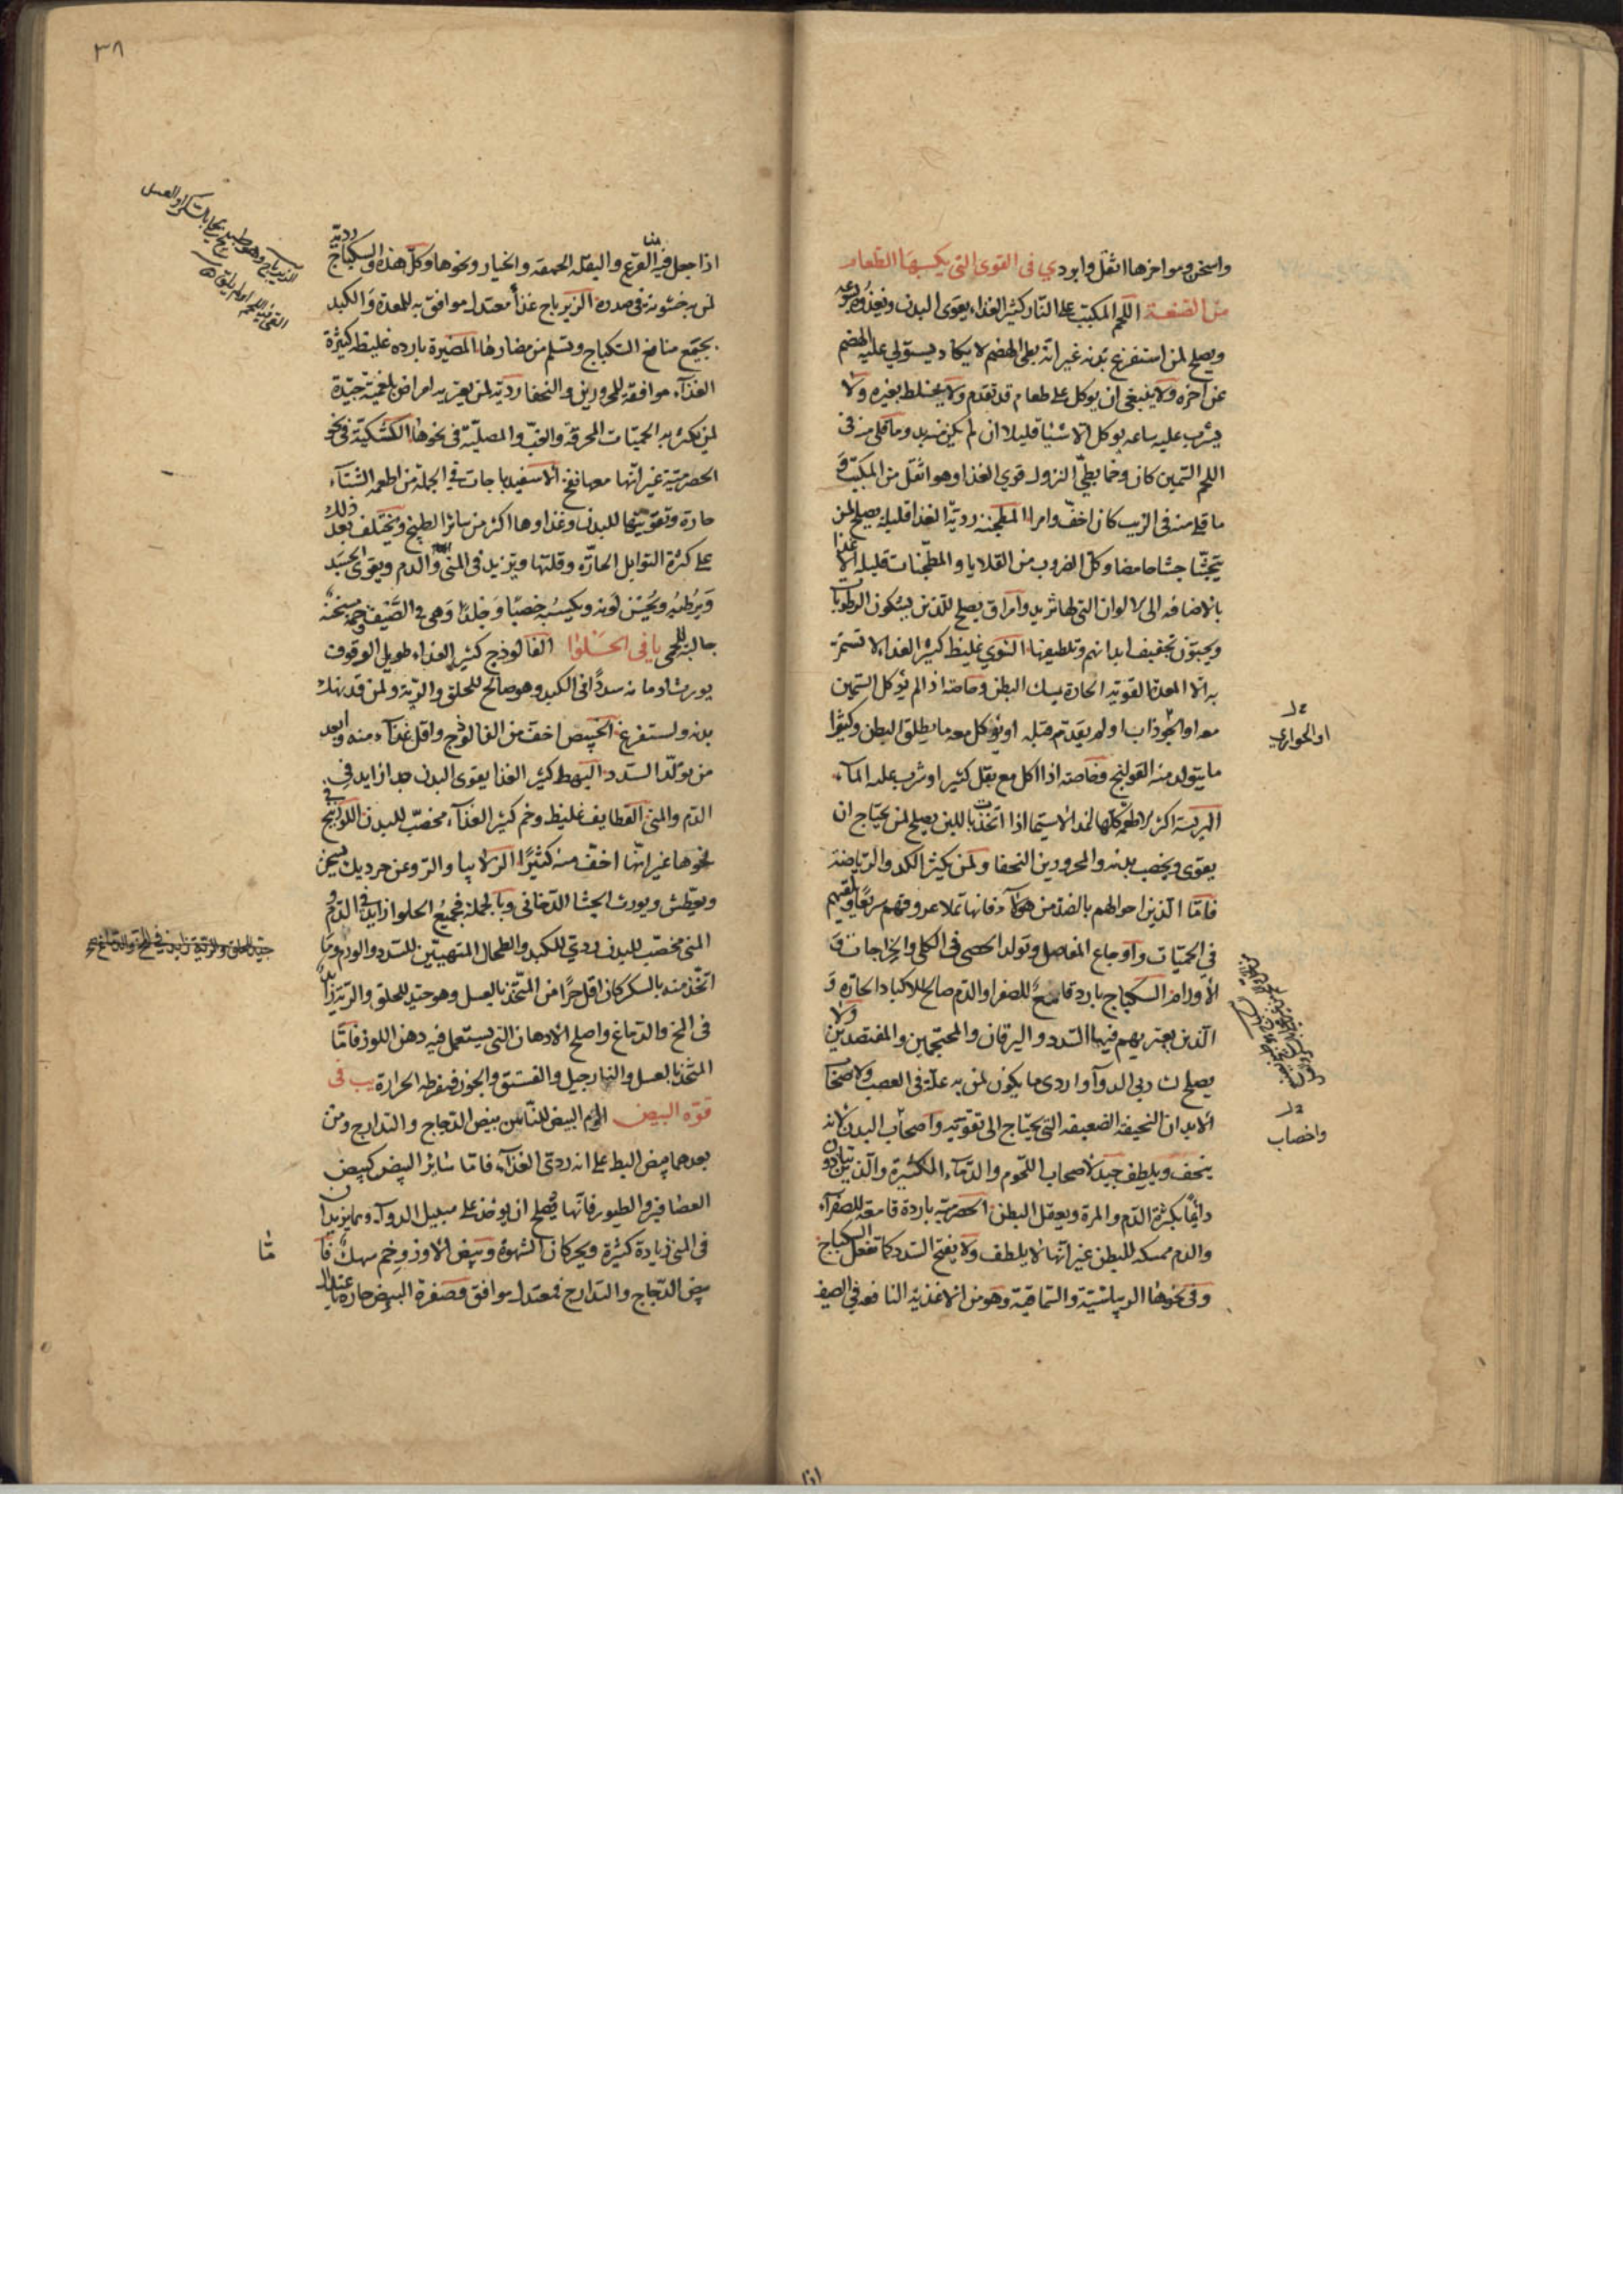 واسخن ومواخرها اثقل وابرد ي في القوى التي يكسبها الطعام
من الصنعة اللحم المكبب على النار كثير الغذاء يقوى البدن ويغذوه
ويصلح لمن استفرغ بدنه غير انه بطى الهضم لا يكاد يستولي عليه الهضم
عن اخره ولا ينبغي ان يوكل على طعام قد تقدم ولا يختلط بغيره ولا
يشرب عليه ساعة يوكل الا شيئا قليلا ان لم يكن منه بد وما قلى منه في
اللحم السمين كان وخما بطئ النزول قوي الغذا وهو اثقل من المكبب و
ما قلى منه في الزيت كان اخف وامرا المطجنه ردية الغذا قليلة يصلح لمن
يتجشا جشا حامضا وكل الضروب من القلايا والمطجنات قليلة الغذا
بالاضافه الى الالوان التي لها ثريد وامراق يصلح للذين يشكون الرطوبات
ويحبون تجفيف ابدانهم وتلطيفها الشوي غليظ كثير الغذاء لا تستمر
به الا المعدة القوية الحارة يمسك البطن وخاصة اذا لم يؤكل السمين
معه او الجوذاب او لم يقدم قبله او يؤكل معه ما يطلق البطن وكثيرا
ما يتولد منه القولنج وخاصة اذا اكل مع بقل كثير او شرب عليه الماء
الهريسة اكثر الاطعمة كلها غذا لاسيما اذا اتخذت باللبن يصلح لمن يحتاج ان
يقوى ويخصب بدنه والمحرورين النحفا ولمن يكثر الكد والرياضة
فاما الذين احوالهم بالضد من هولاء فانها تملا عروقهم سريعا ويلقيهم
في الحميات واوجاع المفاصل وتولد الحصى في الكلى والخراجات و
الاورام السكباج بارد قامع للصفرا والدم صالح للاكباد الحارة و
الذين يعتريهم فيها السدد واليرقان والمحتجمين والمفتصدين ولا
يصلح لذوي السودآ واردى ما يكون لمن به علة في العصب ولاصحاب
الابدان النحيفة الضعيفة التي يحتاج الى تقوية واصحاب البدن لانه
ينحف ويلطف جيد لاصحاب اللحوم والدماء الكثيرة والذين يتاذون
دائما بكثرة الدم والمرة ويعقل البطن الحصرمية باردة قامعة للصفراء
والدم ممسكة للبطن غير انها لا يلطف ولا يفتح السدد كما تفعل السكباج
وفي نحوها الريباسية والسماقية وهو من الاغذية النافعة في الصيف
او الحوارى
واخصاب
اذا
٣٨
اذا جعل فيها القرع والبقلة الحمقة والخيار ونحوها وكل هذه والسكباج ردية
لمن به خشونة في صدره الزيرباج غذا معتدل موافق به للمعدة والكبد
يجتمع منافع السكباج وتسلم من مضارها المضيرة باردة غليظة كثيرة
الغذآء موافقة للمحرورين والنحفا ردية لمن يعتريه امراض بلغمية جيدة
لمن يكثر به الحميات المحرقة والغب والمصلية في نحوها الكشكية في نحو
الحصرمية غير انها معها نفخ الاسفيدباجات في الجملة من اطعمة الشتآء
حارة وتقويتها للبدن وغذاوها اكثر من سائر الطبيخ ويختلف بعد ذلك
على كثرة التوابل الحارة وقلتها ويزيد في المنى والدم ويقوى الجسد
ويرطبه ويحسن لونه ويكسبه خصبا وجلدا وهي في الصيف وخمة مسخنة
جالبة للحمى يا في الحلوا الفالوذج كثير الغذاء طويل الوقوف
يورث ادمانه سددا في الكبد وهو صالح للحلق والرية ولمن قد نهك
بدنه واستفرغ الخبيص اخف من الفالوذج واقل غذآء منه وابعد
من تولد السدد البهط كثير الغذا يقوى البدن جدا زايد في
الدم والمنى القطايف غليظ وخم كثير الغذآء مخصب للبدن اللوزينج في
نحوها غير انها اخف منه كثيرا الزلابيا والتروعن جرديك يسخن
ويعطش ويورث الجشا الدخاني وبالجملة فجميع الحلوا زايد في الدم و
المنى مخصب للبدن ردئ للكبد والطحال المتهيئين للسدد والورم وما
اتخذ منه بالسكر كان اقل حرا من المتخذ بالعسل وهو جيد للحلق والرية زايد
في المخ والدماغ واصلح الادهان التي يستعمل فيه دهن اللوز فاما
المتخذ بالعسل والنارجيل والفستق والجوز فمفرطة الحرارة يب في
قوة البيض الوم البيض للناس بيض الدجاج والتدارج ومن
بعدهما بيض البط على انه ردئ الغذآء فاما سائر البيض كبيض
العصافير والطيور فانها يصلح ان يوخذ على سبيل الدوآء ومما يزيدان
في المنى زيادة كثيرة ويحركان الشهوة وبيض الاوز وخم سهك فا
بيض الدجاج والتدارج فمعتدل موافق وصفرة البيض حارة باعتدال
جيد للحلق والرية زايد في المخ والدماغ
مّا